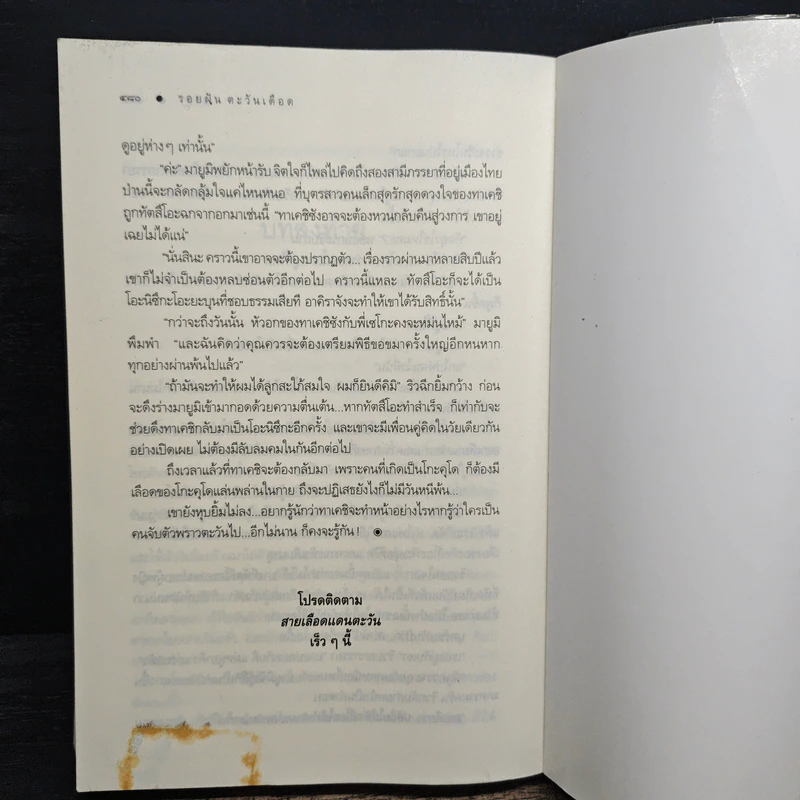 ๔๘๐ ● รอยฝัน ตะวันเดือด
ดูอยู่ห่างๆ เท่านั้น"
"ค่ะ" มายูมิพยักหน้ารับ จิตใจก็ไพล่ไปคิดถึงสองสามีภรรยาที่อยู่เมืองไทย
ป่านนี้จะกลัดกลุ้มใจแค่ไหนหนอ ที่บุตรสาวคนเล็กสุดรักสุดดวงใจของทาเคชิ
ถูกทัตสึโอะฉกจากอกมาเช่นนี้ "ทาเคชิซังอาจจะต้องหวนกลับคืนสู่วงการ เขาอยู่
เฉยไม่ได้แน่"
"นั่นสินะ คราวนี้เขาอาจจะต้องปรากฏตัว... เรื่องราวผ่านมาหลายสิบปีแล้ว
เขาก็ไม่จำเป็นต้องหลบซ่อนตัวอีกต่อไป คราวนี้แหละ ทัตสึโอะก็จะได้เป็น
โอะนิซึกะโอะยะบุนที่ชอบธรรมเสียที อาคิราจังจะทำให้เขาได้รับสิทธิ์นั้น"
"กว่าจะถึงวันนั้น หัวอกของทาเคชิซังกับพี่เซโกะคงจะหม่นไหม้" มายูมิ
พึมพำ "และฉันคิดว่าคุณควรจะต้องเตรียมพิธีขอขมาครั้งใหญ่อีกหนหาก
ทุกอย่างผ่านพ้นไปแล้ว"
"ถ้ามันจะทำให้ผมได้ลูกสะใภ้สมใจ ผมก็ยินดีคิมิ" ริวฉีกยิ้มกว้าง ก่อน
จะดึงร่างมายูมิเข้ามากอดด้วยความตื่นเต้น...หากทัตสึโอะทำสำเร็จ ก็เท่ากับจะ
ช่วยดึงทาเคชิกลับมาเป็นโอะนิซึกะอีกครั้ง และเขาจะมีเพื่อนคู่คิดในวัยเดียวกัน
อย่างเปิดเผย ไม่ต้องมีลับลมคมในกันอีกต่อไป
ถึงเวลาแล้วที่ทาเคชิจะต้องกลับมา เพราะคนที่เกิดเป็นโกะคุโด ก็ต้องมี
เลือดของโกะคุโดแล่นพล่านในกาย ถึงจะปฏิเสธยังไงก็ไม่มีวันหนีพ้น...
เขายังหุบยิ้มไม่ลง...อยากรู้นักว่าทาเคชิจะทำหน้าอย่างไรหากรู้ว่าใครเป็น
คนจับตัวพราวตะวันไป...อีกไม่นาน ก็คงจะรู้กัน! ◉
โปรดติดตาม
สายเลือดแดนตะวัน
เร็ว ๆ นี้